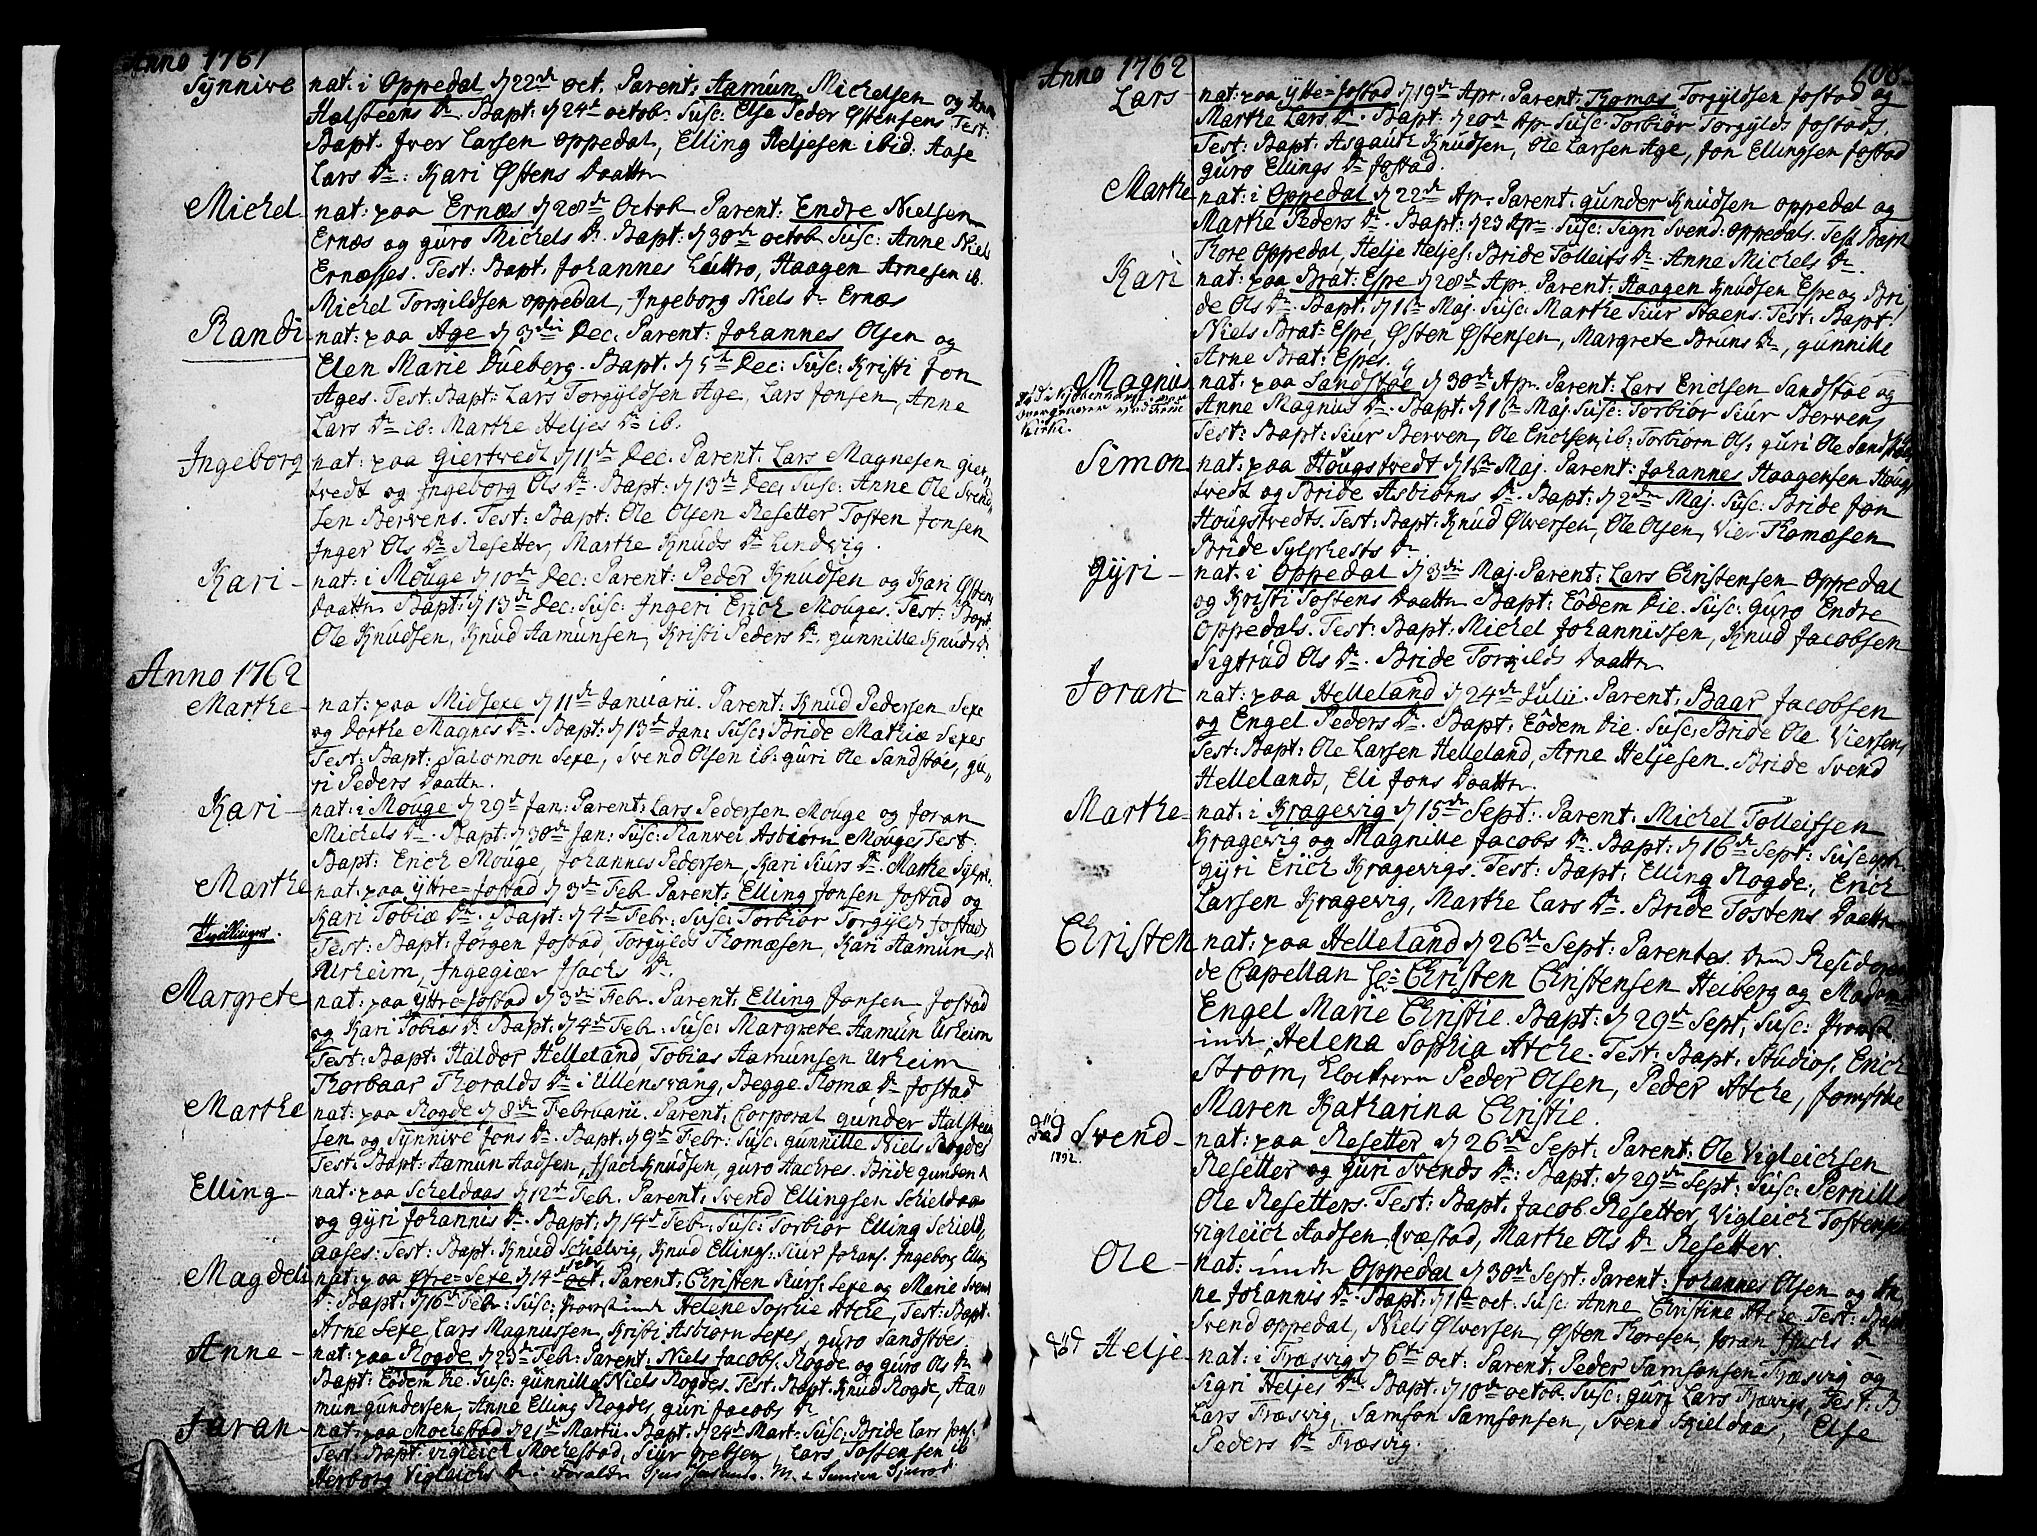 Anno 1761
Synnive nat: i Oppedal d 22de oct. Parent: Aamun Michelsen og Anne
Halsteens Dr. Bapt: d 24d octobr. Susc: Else Peder Østensens Test:
Bapt. Iver Larsen oppedal, Elling Heljesen ibid: Aase
Lars Dr: Kari Østens Daatter
Michel nat: paa Ernæs d 28de Octob Parent: Endre Nielsen
Ernæs og guro Michels Dr. Bapt: d 30de octob Susc: Anne Niels
Ernæsses. Test: Bapt. Johannes Luttro, Haagen Arnesen ib.
Michel Torgildsen oppedal, Ingeborg Niels Dr Ernæs
Randi nat: paa Age d 3die Dec: Parent: Johannes Olsen og
Elen Marie Dueberg. Bapt: d 5te Dec: Susc: Kristi Jon
Ages. Test: Bapt: Lars Torgyldsen Age, Lars Jonsen, Anne
Lars Dr ib: Marthe Heljes Dr ib.
Ingeborg nat: paa giertvedt d 11de Dec. Parent: Lars Magnesen gier,
tvedt og Ingeborg Ols Dr. Bapt: d 13de Dec: Susc: Anne Ole Svend
sen Bervens. Test: Bapt: Ole Olsen Resetter Tosten Jonsen
Inger Ols Dr Resetter, Marthe Knuds Dr Lindvig.
Kari - nat: i Mouge d 10de Dec: Parent: Peder Knudsen og Kari Østens
Daatter Bapt: d 13de Dec: Susc: Ingeri Erich Mouges. Test: Bapt.
Ole Knudsen, Knud Aamunsen, Kristi Peders Dr, gunnille Knuds Dr.
Anno 1762
Marthe - nat: paa Midsexe d 11de Januarii. Parent: Knud Pedersen Sexe
og Dorthe Magnes Dr. Bapt: d 13de Jan: Susc: Bride Mathiæ Sexes
Test: Bapt: Salomon Sexe, Svend Olsen ib: guri Ole Sandstøes, gu"
ri Peders Daatter.
Kari - nat: i Mouge d 29de Jan: Parent: Lars Pedersen Mouge og Joran
Michels Dr. Bapt: d 30de Jan: Susc: Ranvei Asbiørn Mouges Test
Bapt: Erich Mouge, Johannes Pedersen, Kari Siurs Dr. Marthe Sylp:
Marthe nat: paa Yttre-Jostad d 3de Feb Parent: Elling Jonsen Jostad og
Tvillinger. Kari Tobiæ Dr. Bapt: d 4de Febr: Susc: Torbiør Torgylds Jostads
Test: Bapt: Jørgen Jostad, Torgylds Thomæsen, Kari Aamuns Dr
Urheim, Ingegiær Isachs Dr.
Margrete nat: paa Yttre-Jostad d 3de Febr. Parent: Elling Jonsen Jostad
og Kari Tobias Dr Bapt: d 4de Feb: Susc: Margrete Aamun Urheim
Test: Bapt: Haldor Helleland, Tobias Aamunsen Urheim
Thorbaar Thoralds Dr i Ullensvang, Begge Thomæ Dr Jostad
Marthe nat: paa Rogde d 8de Februarii. Parent: Corporal gunder Halsteen
sen og Synnive Jons Dr. Bapt: d 9de Febr: Susc: gunnille Niels Rogdes
Test: Bapt: Aamun Aadsen, Isach Knudsen, guro Aachres. Bride gunders Dr
Elling - nat: paa Scheldaas d 12de Feb. Parent: Svend Ellingsen Schieldaas
og gyri Johannis Dr. Bapt: d 14de Febr: Susc: Torbiør Elling Schield,
aases: Test: Bapt: Knud Schielvig, Knud Ellings: Siur Johans. Ingeborg Ellings
Magdeli nat: paa Øfre-Sexe d 14de Febr. Parent: Christen Siurs: Sexe og Marie Svends
Dr: Bapt: d 16de Feb: Susc: Provstinde Helene Sophie Atche, Test: Bapt:
Arne Sexe, Lars Magnussen, Kristi Asbiørn Sexes, guro Sandstøes
Anne - nat: paa Rogde d 23de Feb: Parent: Niels Jacobs: Rogde og guro Ols Dr
Bapt: Eodem Die. Susc: gunnille Niels Rogdes. Test: Bapt: Knud Rogde, Aa"
mun gundersen, Anne Elling Rogdes, guri Jacobs Dr
Joran - nat: paa Mochestad d 21de Martii. Bapt. d 24de Mart: Susc: Bride Lars Jons:
Test: Bapt: Vigleich Mochestad, Siur, Lars Tostensen ib
Herborg Vigleichs Dr.
Anno 1762
Lars - nat: paa Ytte=Jostad d 19de Apr. Parent: Thomas Torgyldsen Jostad og
Marthe Lars Dr. Bapt: d 20de Apr Susc: Torbiør Torgylds Jostads.
Test: Bapt: Asgaut Knudsen, Ole Larsen Age, Jon Ellingsen Jostad
guro Ellings Dr Jostad.
Marthe nat: i Oppedal d 22de Apr. Parent: gunder Knudsen oppedal og
Marthe Peders Dr. Bapt: d 23 Apr Susc: Sigri Svend: oppedals. Test Bapt
Thore Oppedal, Helje Heljes: Bride Tolleifs Dr. Anne Michels Dr.
Kari nat: paa Brat: Espe d 28de Apr. Parent: Haagen Knudsen Espe og Bri,
de Ols Dr. Bapt: d 16de Maj. Susc: Marthe Siur Haens. Test: Bapt:
Niels Brat=Espe, Østen Østensen, Margrete Bruns Dr., gunnille
Arne Brat: Espes.
Magnus nat: paa Sandstøe d 30de Apr. Parent: Lars Erichsen Sandstøe og
Anne Magnus Dr. Bapt: d 16de Maj. Susc: Torbiør Siur Bervens
Test: Bapt: Siur Berven, Ole Erichsen ib: Torbiørn Ols: guri Ole Sandstøes
Simon nat: paa Hougstvedt d 1ste Maj. Parent: Johannes Haagensen Houg
tvedt og Bride Asbiørns Dr. Bapt: d 2den Maj. Susc: Bride Jon
Hougstvedts. Test: Bapt: Knud Ølversen, Ole Olsen, Vier Thomæsen
Bride Sylphests Dr
Gyri - nat: i Oppedal d 3die Maj. Parent: Lars Christensen Oppedal
og Kristi Tostens Daatter Bapt: Eodem Die. Susc: Guro Endre
Oppedals. Test: Bapt: Michel Johannissen, Knud Jacobsen
Sigtrud Ols Dr. Bride Torgilds Daatter
Joran - nat: paa Helleland d 24de Julii. Parent: Baar Jacobsen
og Engel Peders Dr. Bapt: Eodem Die. Susc: Bride Ole Viersens
Test: Bapt: Ole Larsen Helleland, Arne Heljesen. Bride Svend
Hellelands, Eli Jons Daatter.
Marthe - nat: i Kragevig d 15de Sept: Parent: Michel Tolleifsen
Kragevig og Magnille Jacobs Dr. Bapt: d 16de Sept: Suscept:
Gyri Erich Kragevigs. Test: Bapt: Elling Rogde, Erich
Larsen Kragevig, Marthe Lars Dr. Bride Tostens Daatter
Christen nat: paa Helleland d 26de Sept: Parentes. Dend Resideren
de Capellan Hr: Christen Christensen Heiberg og Madame
Engel Marie Christie. Bapt: d 29de Sept. Susc: Provst
inde Helena Sophia Atche. Test: Bapt: Studios. Erich
Strøm, Peder Olsen, Peder Atche, Jomfrue
Maren Katharina Christie.
død 1832. Svend - nat: paa Resetter d 26de Sept: Parent: Ole Vigleichsen
Resetter og guri Svends Dr: Bapt: d 29de Sept: Susc: Pernille
Ole Resetters. Test: Bapt: Jacob Resetter, Vigleich Tostensen
Vigleich Aadsen Qvæstad, Marthe Ols Dr Resetter.
Ole - nat: inde Oppedal d 30de Sept: Parent: Johannes Olsen og An,
ne Johannis Dr. Bapt: d 1ste oct. Susc: Anne Christine Atche Test: Bapt
Svend oppedal, Niels Ølversen, Østen Thoresen, Joran Isachs Dr
død Helje - nat: i Træsvig d 6te oct: Parent: Peder Samsonsen Træsvig og
Sigri Heljes Dr. Bapt: d 10de octob. Susc: guri Lars Træsvigs, Test: B
Lars Træsvig, Samson Samsonsen, Svend Skieldaas, Else
Peders Dr Træsvig.